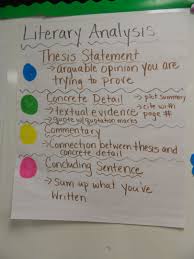 Literary Analysis
Thesis Statement
→ arguable opinion you are
trying to prove
Concrete Detail → plot summary
→ textual evidence → cite with
→ quote w/quotation marks page #
Commentary
→ Connection between thesis and
concrete detail
Concluding Sentence
→ sum up what you've
written